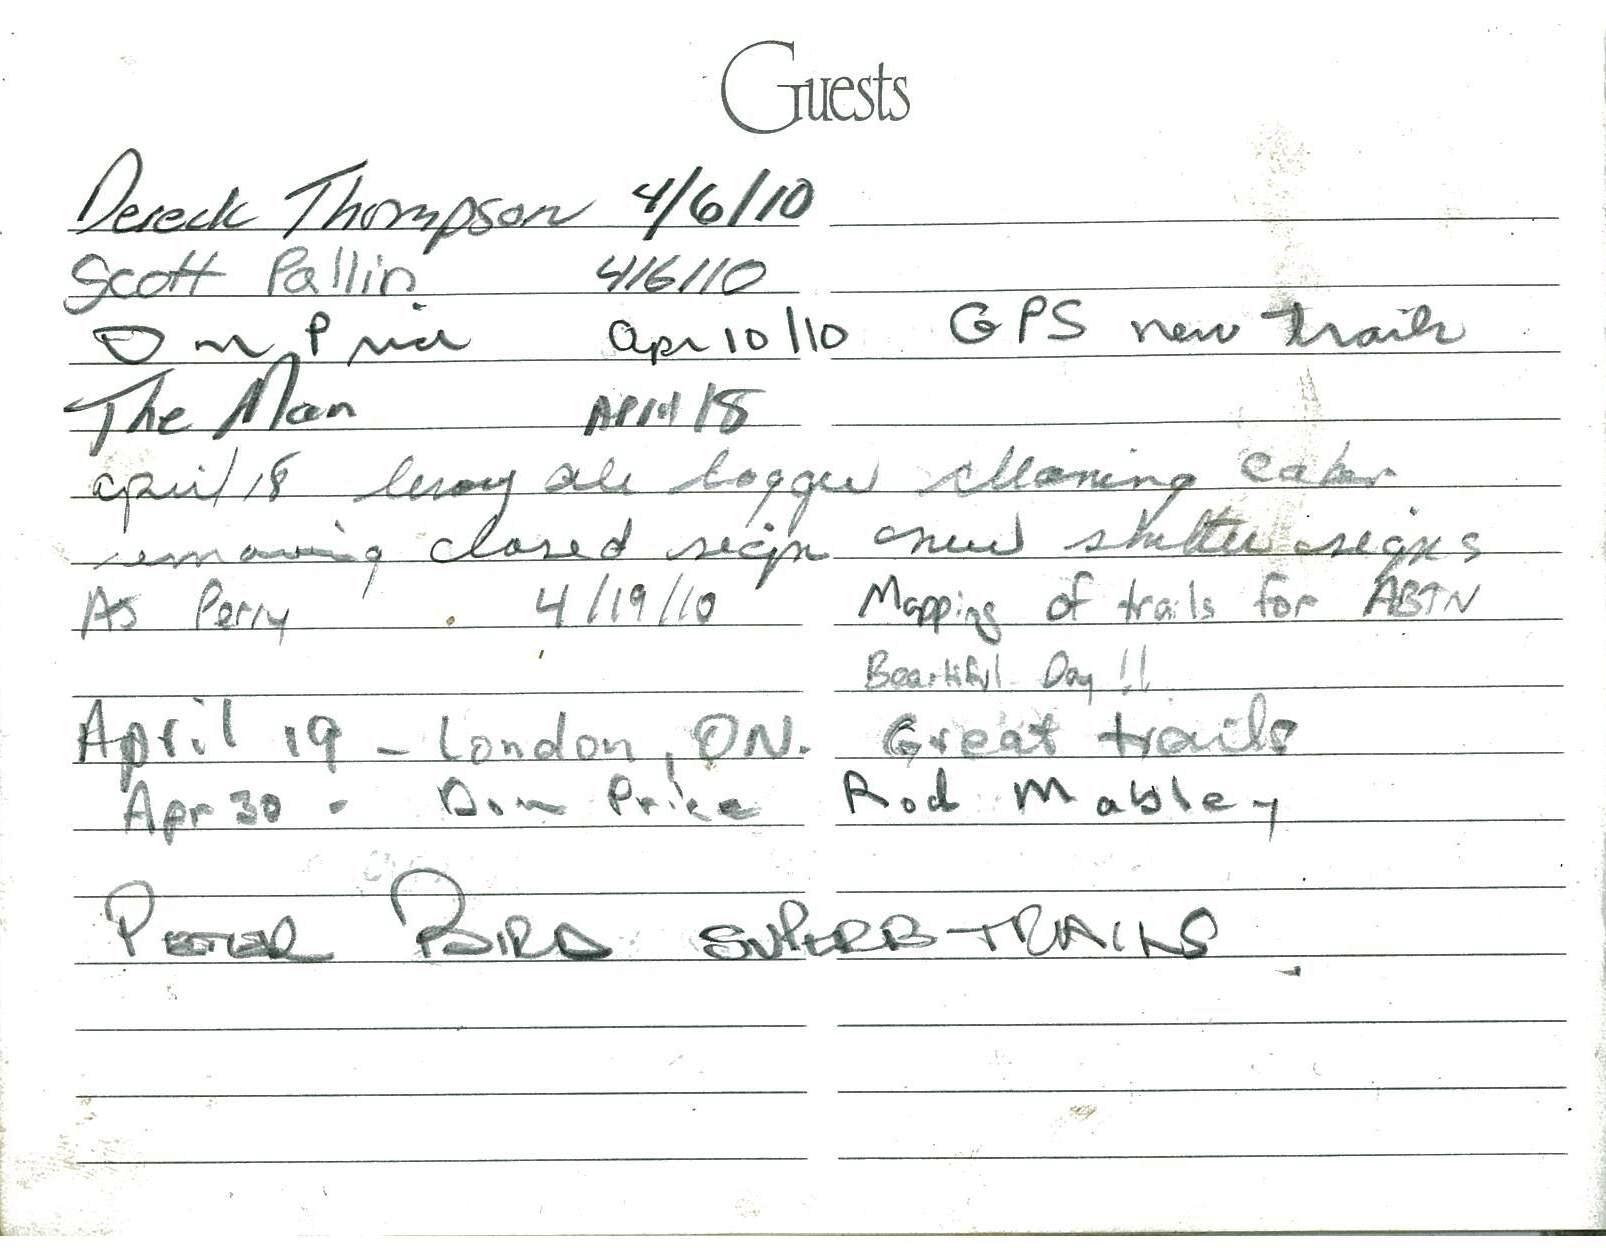 Guests
Dereck Thompson 4/6/10
Scott Pallin 4/6/10
Don Price Apr 10/10 GPS new trails
The Man April 18
april 18 leroy logger cleaning
removing closed sign new shelter signs
AJ Perry 4/19/10 Mapping of trails for ABTN
Beautiful Day!!
April 19 - London, ON. Great trails
Apr 30 - Don Price Rod Mabley
PETER BAIRD SUPERB TRAILS